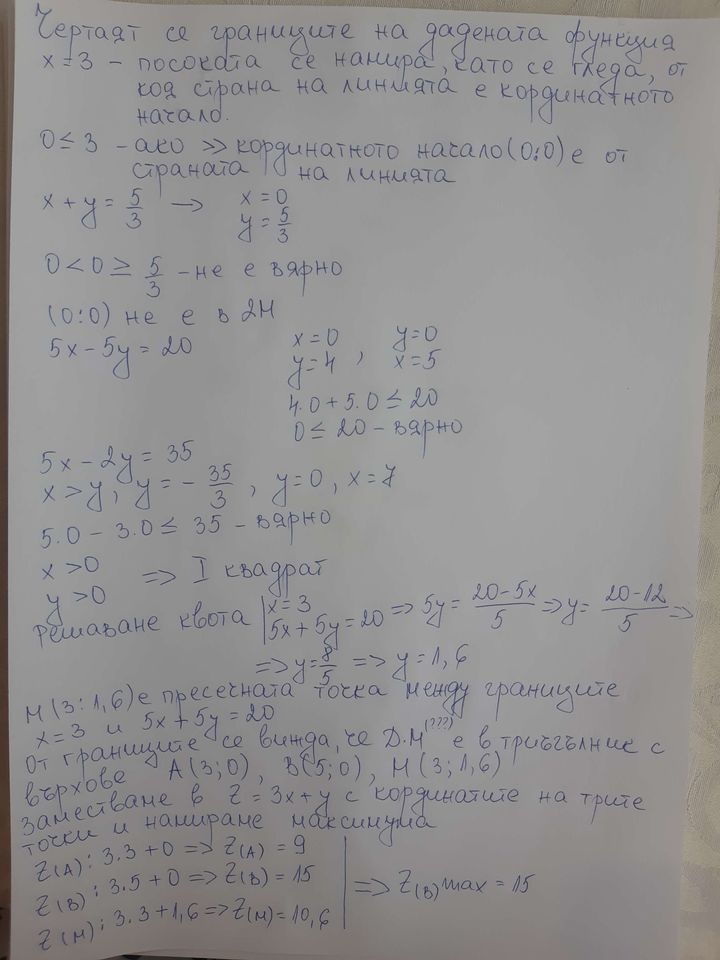 Чертаят се границите на дадената функция
x = 3 - посоката се намира, като се гледа, от
коя страна на линията е кординатното
начало.
0 ≤ 3 - ако >> кординатното начало (0:0) е от
страната на линията
x + y = 5/3 → x = 0
y = 5/3
0 < 0 ≥ 5/3 - не е вярно
(0:0) не е в
5x - 5y = 20
x = 0 y = 0
y = 4 , x = 5
4.0 + 5.0 ≤ 20
0 ≤ 20 - вярно
5x - 2y = 35
x > y, y = - 35/3 , y = 0, x = 7
5.0 - 3.0 ≤ 35 - вярно
x > 0
y > 0 => I квадрат
Решаване квота | x = 3
5x + 5y = 20 => 5y = 20-5x/5 => y = 20-12/5 =>
=> y = 8/5 => y = 1,6
М (3:1,6) е пресечната точка между границите
x = 3 и 5x + 5y = 20
От границите се вижда, че Д.М (???) е в триъгълник с
върхове А (3;0), В (5;0), М (3;1,6)
Заместване в Z = 3x + y с кординатите на трите
точки и намиране максимума
Z(A): 3.3 + 0 => Z(A) = 9
Z(B): 3.5 + 0 => Z(B) = 15 => Z(B) max = 15
Z(M): 3.3 + 1,6 => Z(M) = 10,6